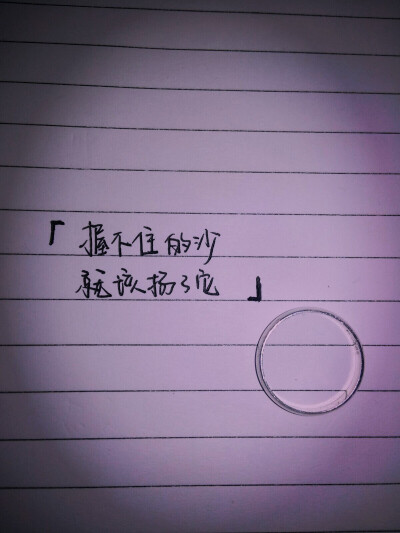 「握不住的沙
就该扬了它」